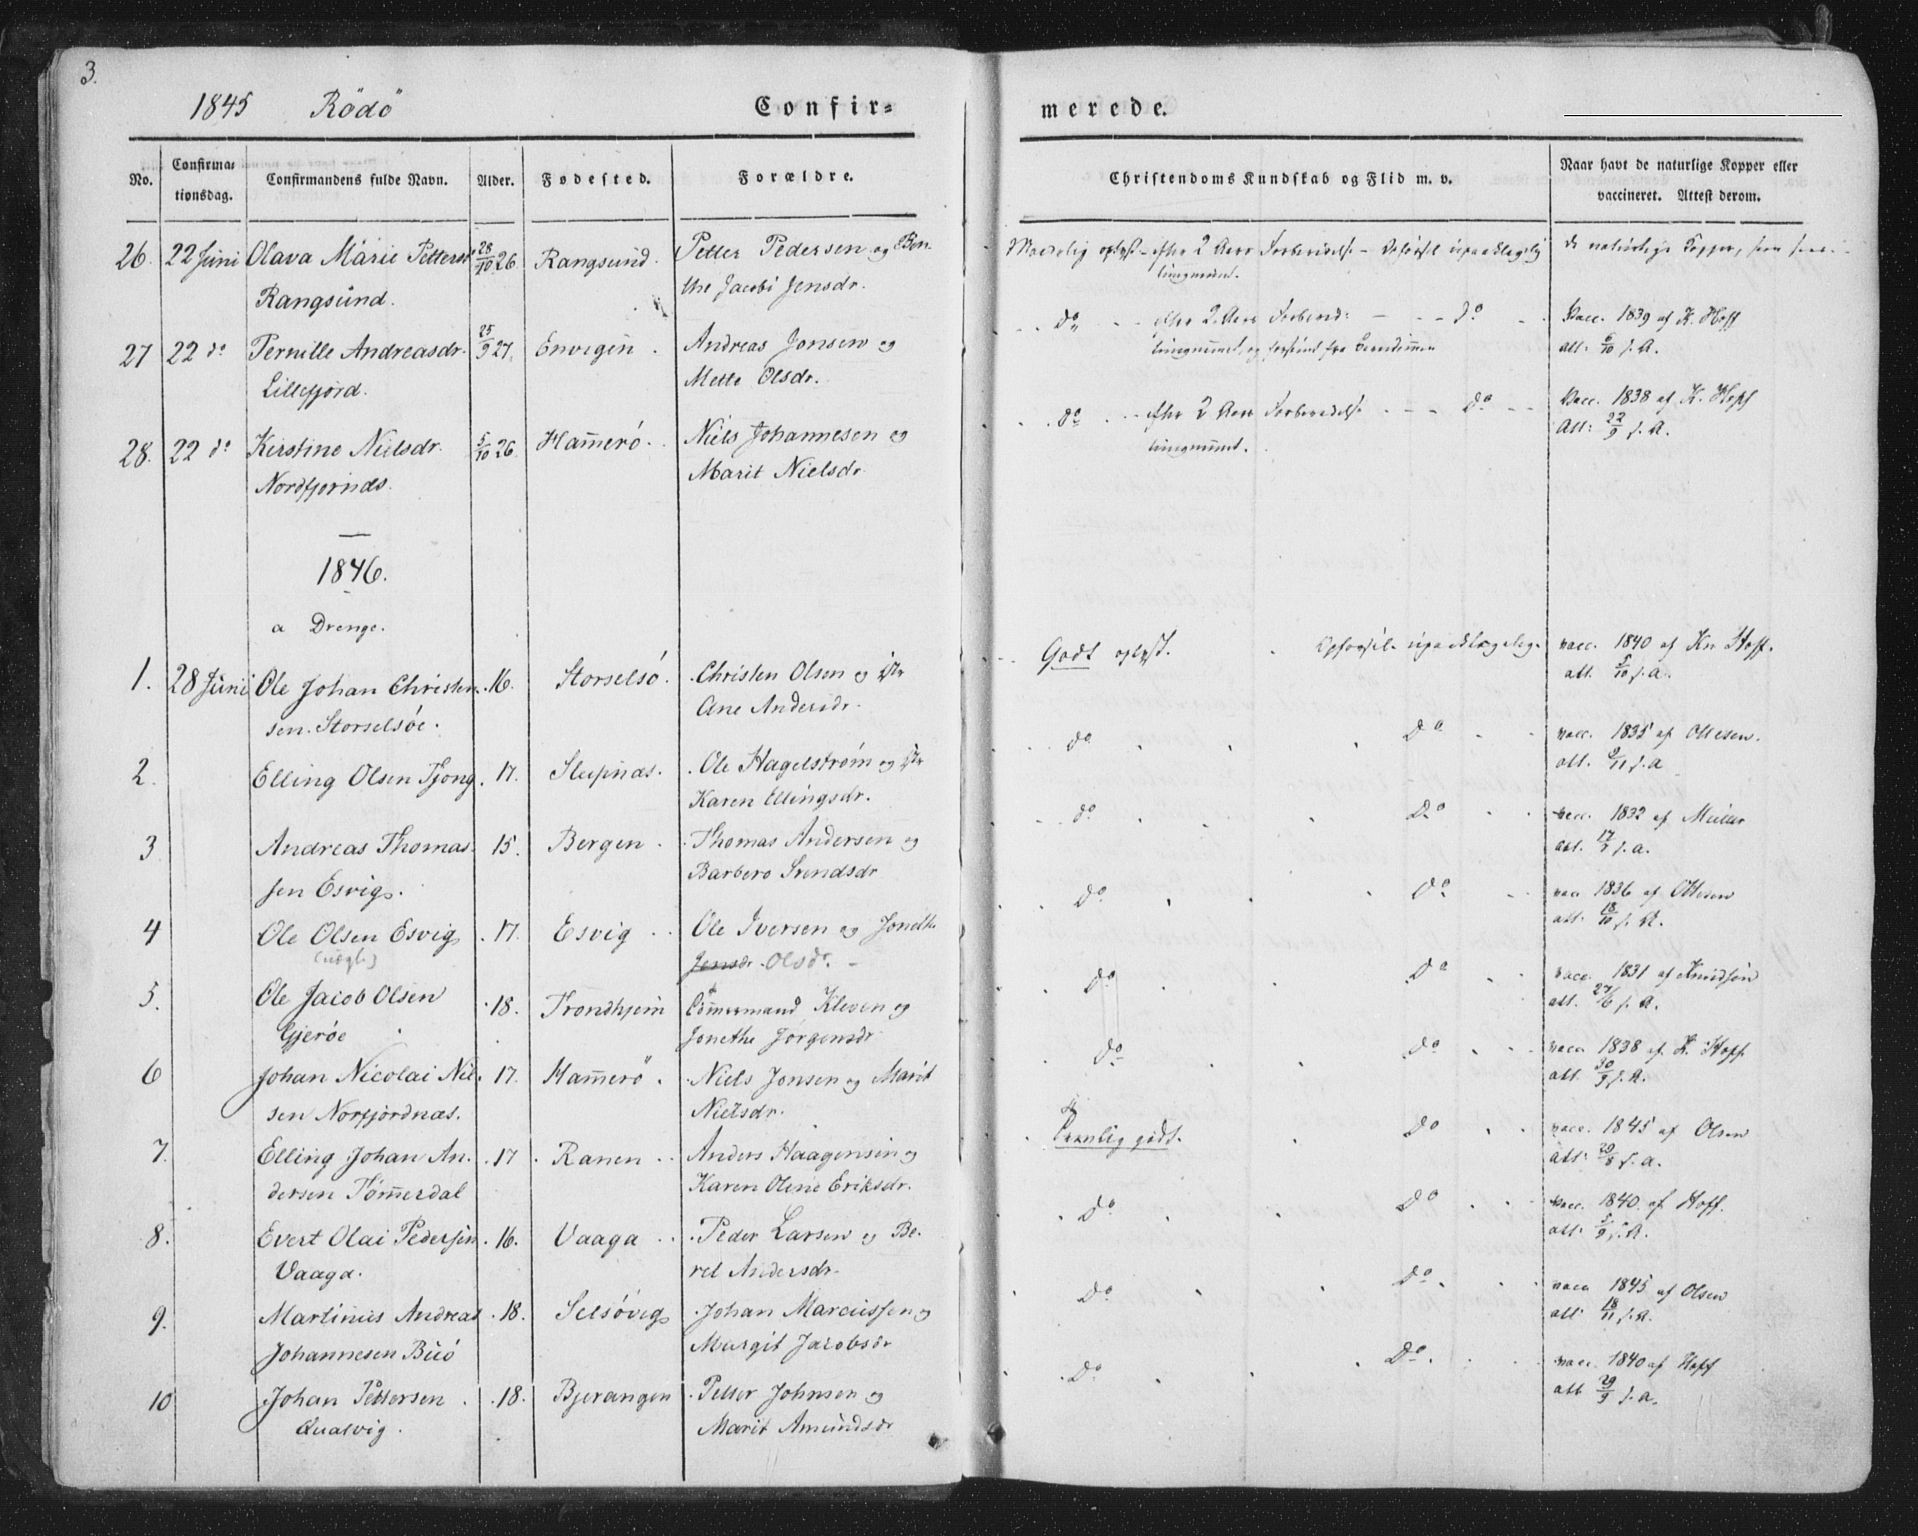 3.
1845 Rödö Confir=
merede.
No. Confirma= tionsdag. Confirmandens fulde Navn. Alder. Fødested. Forældre. Christendoms Kundskab og Flid m. v. Naar havt de naturlige Kopper eller vaccineret. Attest derom.
26. 22 Juni Olava Marie Petters 28/10 26 Rangsund. Petter Pedersen og Ben- Maadelig oplyst - efter 2 Aars Forberedelse - Opførsel upaaklagelig de naturlige Kopper,
Rangsund. the Jacobi Jensdr.
27 22 do Pernille Andreasdr. 25/9 27. Envegen. Andreas Jonsen og do efter 2 Aars Forbered: - - do Vacc. 1839 af K. Hoff
Lillefjord. Mette Olsdr. att: 6/10 s. A.
28. 22 do Kirstine Nielsdr. 5/10 26 Hamerö. Niels Johannesen og do efter 2 Aars Forberedelse - - do Vacc. 1838 af K. Hoff
Nordfjornæs. Marit Nielsdr. Att: 22/9 s. A.
1846.
a Drenge.
1. 28 Juni Ole Johan Christen- 16. Storselsö. Christen Olsen og Hr Godt oplyst. Opførsel upaaklagelig. vacc. 1840 af Kn Hoff.
sen. Storselsöe. Ane Andersdr. att. 5/10 s. a.
2. Elling Olsen Tjong. 17. Sleipnæs. Ole Hagelström og Hr do do vacc. 1835 af Ottesen.
Karen Ellingsdr. att. 9/11 s. a
3 Andreas Thomas- 15. Bergen. Thomas Andersen og do Do vacc. 1832 af
sen Esvig. Barbero Svendsdr att. s. a.
4 Ole Olsen Esvig. 17. Esvig Ole Iversen og Joneth. do Do vacc 1836 af Ottesen
Jensdr. Olsdr. att. 18/10 s. A.
5. Ole Jacob Olsen 18. Trondhjem Kleven og do Do vacc. 1831 af Knudson
Gjeröe Jonethe Jörgensdr att. 27/6 s. A.
6 Johan Nicolai Niel- 17. Hamerö. Niels Jonsen og Marit do do vacc 1838 af K. Hoff
sen Norfjordnæs. Nielsdr. att. 30/9 s. A.
7. Elling Johan An- 17. Ranen Anders Haagensen og Temlig godt. Do vacc. 1845 af Olsen
dersen Tömerdal Karen Oline Eriksdr. att: 20/8 s. a.
8. Evert Olai Pedersen 16. Vaaga Peder Larsen og Be- do Do vacc. 1840. af Hoff.
Vaaga. ret Andersdr. att. 5/9 s. A.
9. Martinus Andreas 18. Selsövig Johan Marcussen og do Do. vacc 1845 af Olsen
Johannesen Buö Margit Jacobsdr att 18/11 s. A.
10 Johan Pettersen 18. Bjerangen Petter Johnsen og do Do. vacc. 1840 af Hoff
Qualvig. Marit Amundsdr att 29/9 s. A.